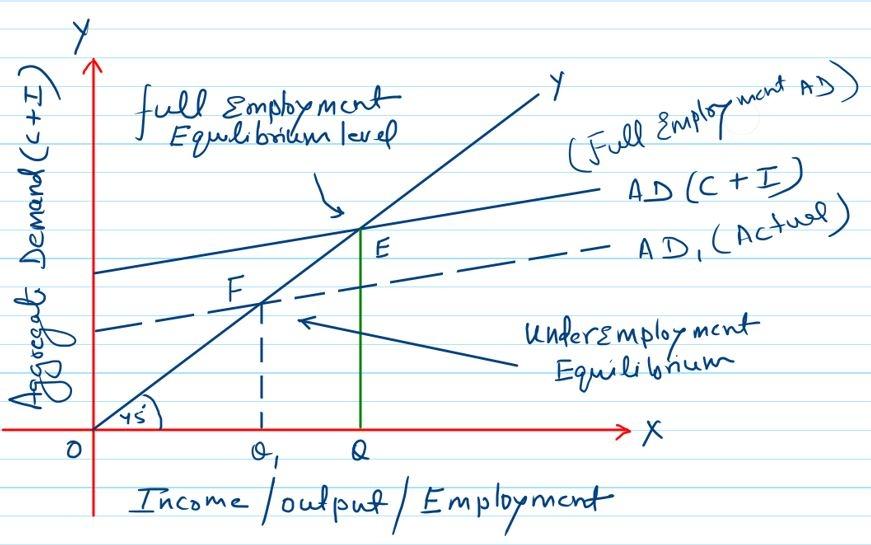 Y
Aggregate Demand (C+I)
full Employment
Equilibrium level
Y
(Full Employment AD)
AD (C + I)
AD₁ (Actual)
E
F
UnderEmployment
Equilibrium
45°
O
Q₁
Q
X
Income / output / Employment